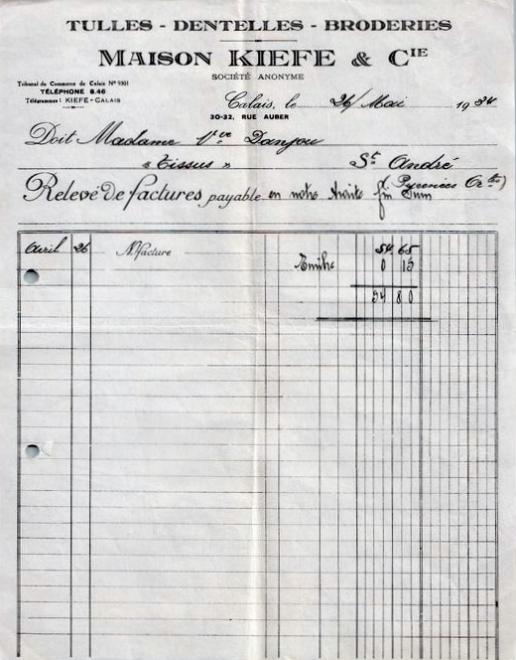 TULLES - DENTELLES - BRODERIES
MAISON KIEFE & CIE
SOCIÉTÉ ANONYME
Tribunal de Commerce de Calais N° 9301
TÉLÉPHONE 8.46
Télégrammes: KIEFE-CALAIS
Calais, le 26/Mai 1934
30-32, RUE AUBER
Doit Madame Vve Danjou
« Tissus » St André
(Pyrénées Or les)
Relevé de factures payable en notre traite fin Juin
Avril 26 N/facture 54.65
Timbre 0 15
54 80